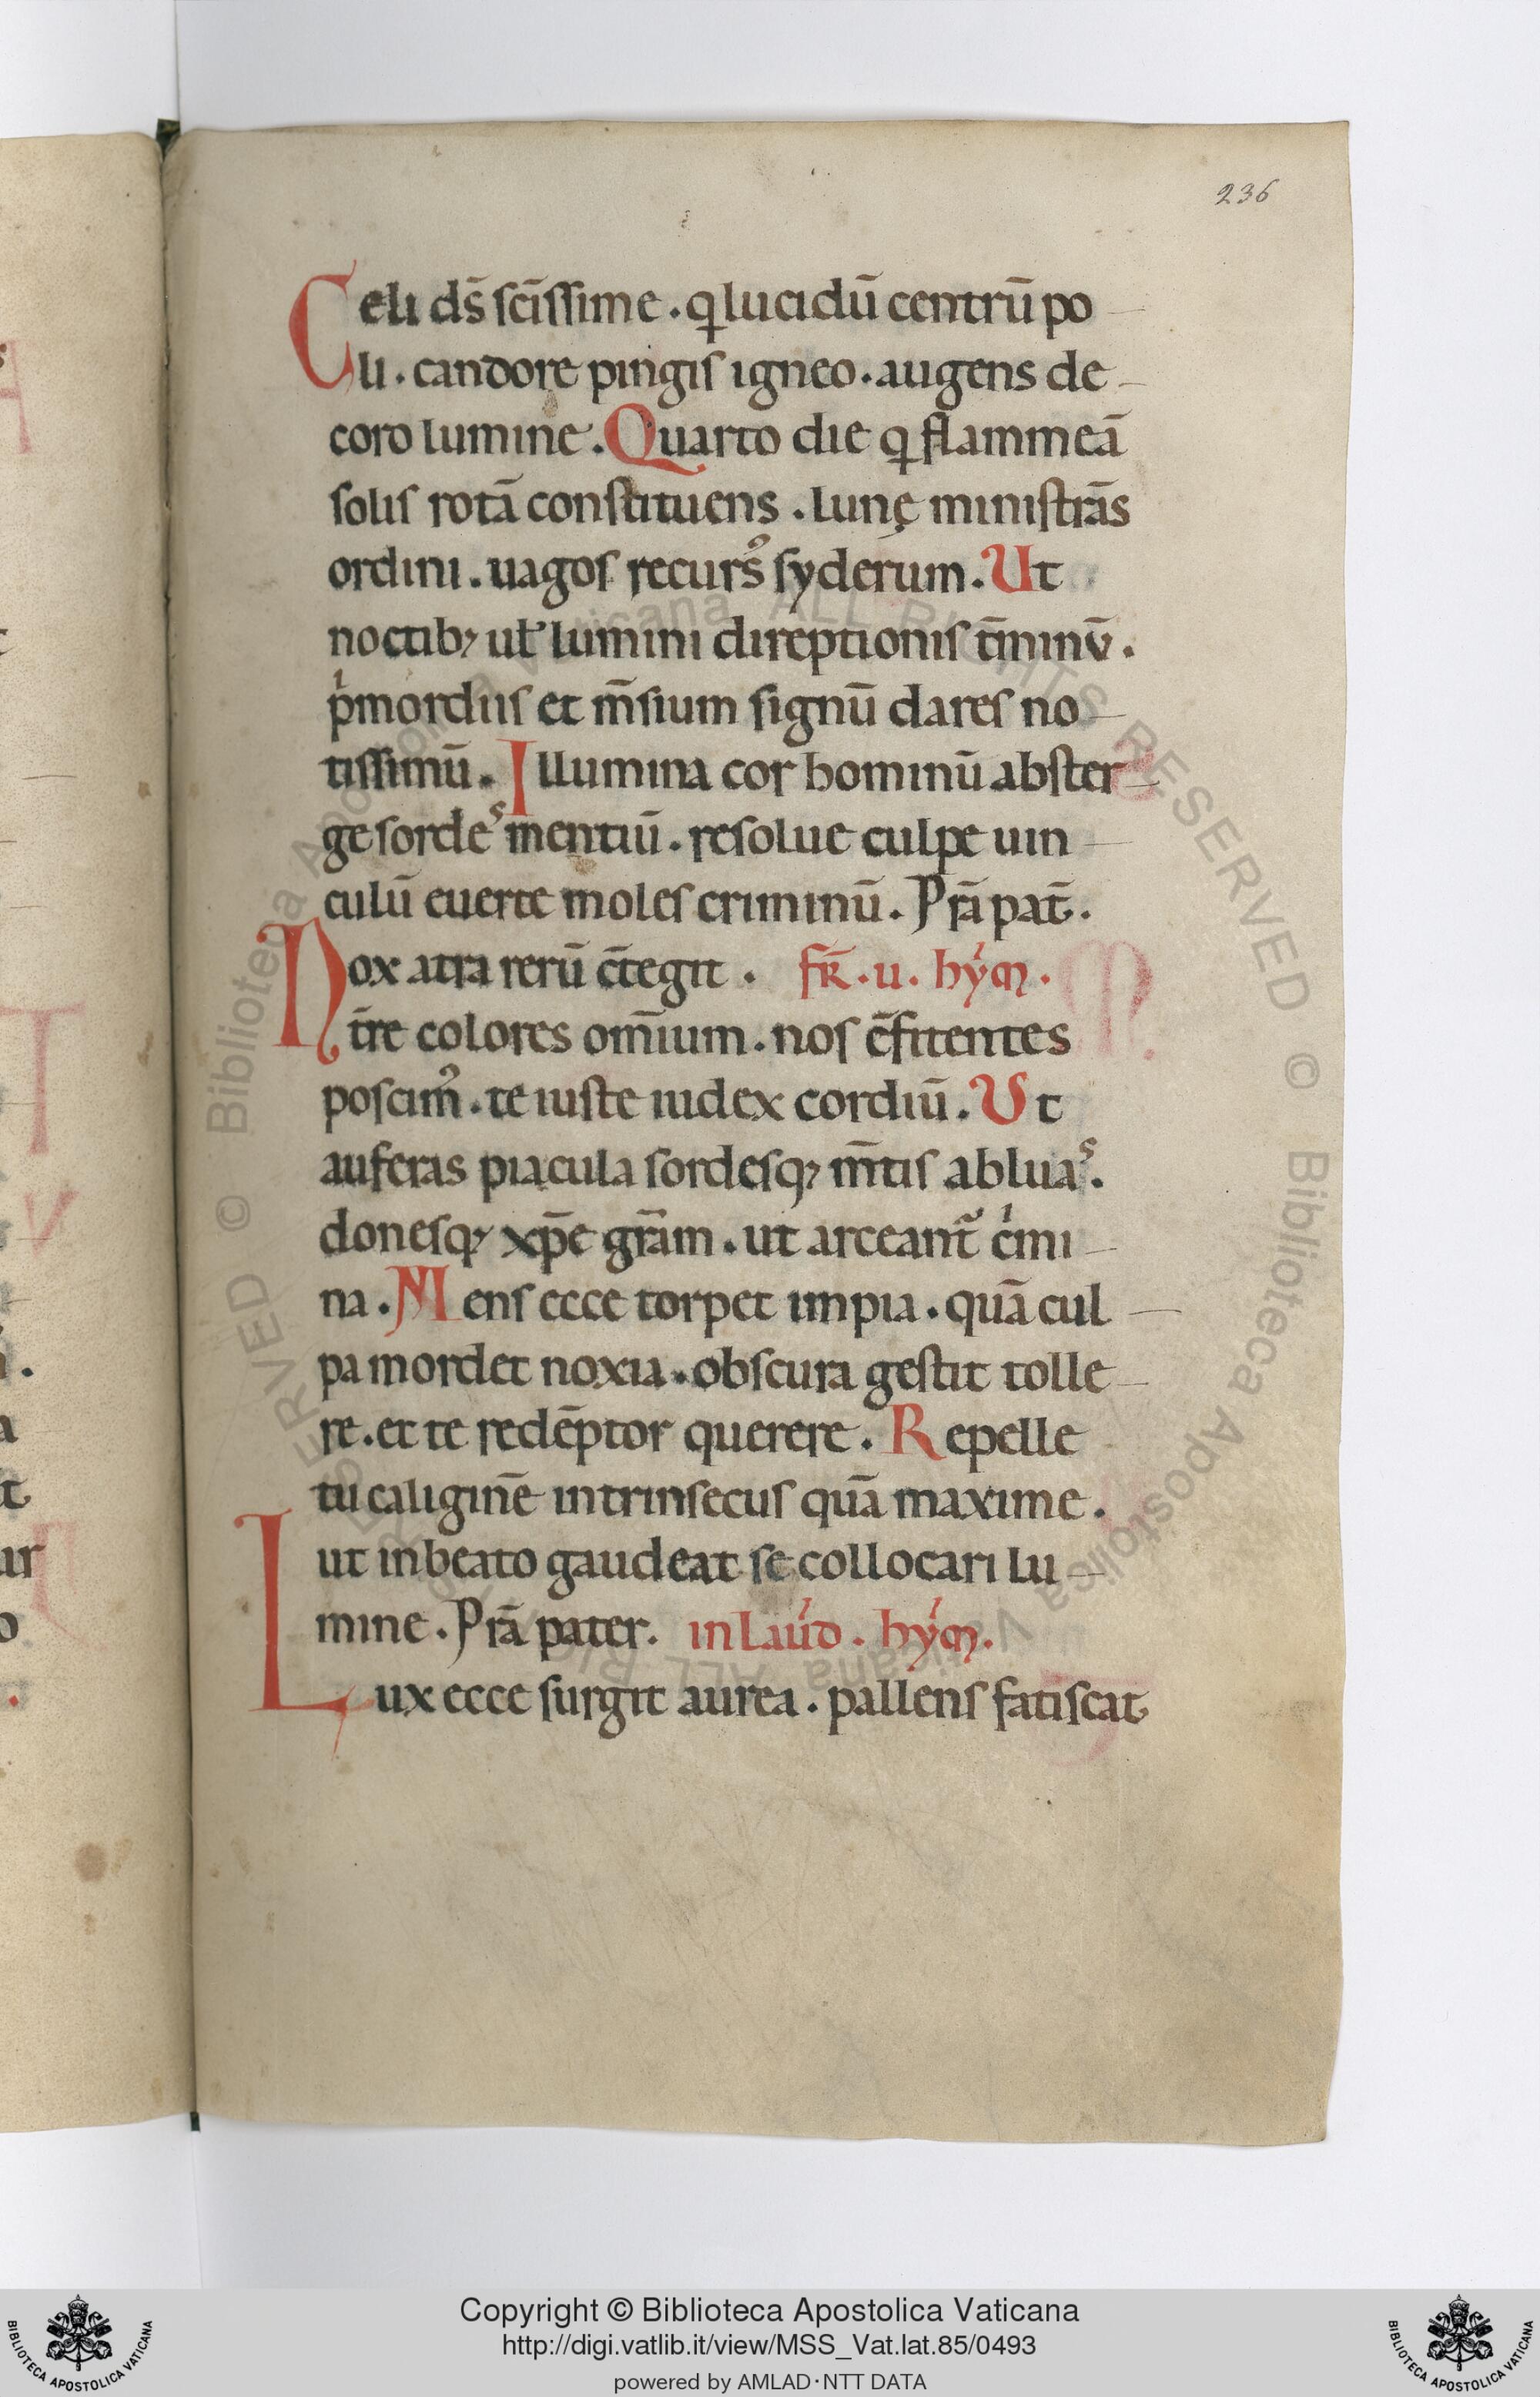 236
Celi ds̄ sc̄issime . q lucidū centrū po
li . candore pingis igneo . augens de
coro lumine . Quarto die q flammeā
solis rotā constituens . lunę ministrās
ordini . uagos recursꝰ syderum . Ut
noctibꝫ ul̵ lumini direptionis t̄minū .
pͥmordiis et m̄sium signū dares no
tissimū . Illumina cor hominū abster
ge sordes mentiū . resolue culpe uin
culū euerte moles criminū . Prā pat̄ .
Nox atra rerū c̄tegit . fr̄ . u . hym̄ .
t̄re colores om̄ium . nos c̄fitentes
poscimꝰ . te iuste iudex cordiū . Ut
auferas piacula sordesqꝫ m̄tis abluas .
donesqꝫ xp̄e grām . ut arceant᷑ cͥmi
na . Mens ecce torpet impia . quā cul
pa mordet noxia . obscura gestit tolle
re . et te redēptor querere . Repelle
tu caliginē intrinsecus quā maxime .
ut in beato gaudeat se collocari lu
mine . Prā pater . in laud . hym̄ .
Lux ecce surgit aurea . pallens fatiscat
© Biblioteca Apostolica Vaticana ALL RIGHTS RESERVED
Copyright © Biblioteca Apostolica Vaticana
http://digi.vatlib.it/view/MSS_Vat.lat.85/0493
powered by AMLAD·NTT DATA
BIBLIOTECA APOSTOLICA VATICANA
BIBLIOTECA APOSTOLICA VATICANA